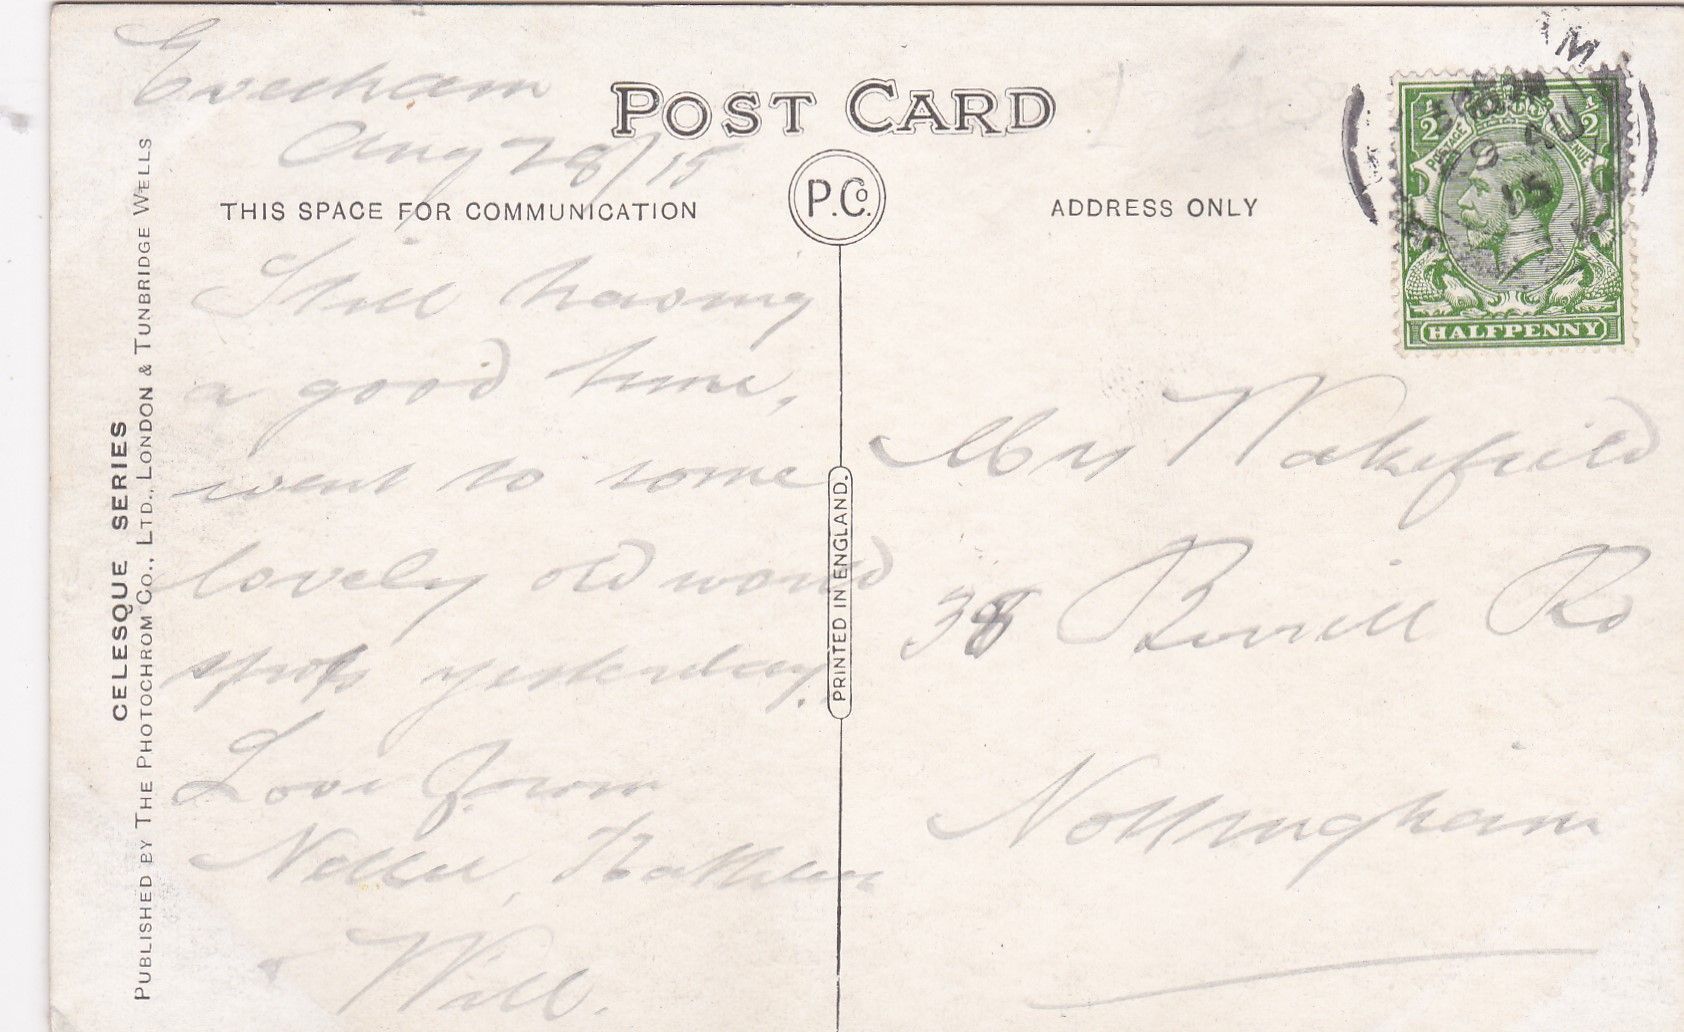 POST CARD
P.Co.
THIS SPACE FOR COMMUNICATION
ADDRESS ONLY
Evesham
Aug 28/15
Still having
a good time,
went to some
lovely old world
spots yesterday.
Love from
Nellie, Kathleen
Will.
Mrs Wakefield
38 Burrill Rd
Nottingham
CELESQUE SERIES
PUBLISHED BY THE PHOTOCHROM CO., LTD., LONDON & TUNBRIDGE WELLS
PRINTED IN ENGLAND.
POSTAGE REVENUE
1/2 1/2
HALFPENNY
AU
15